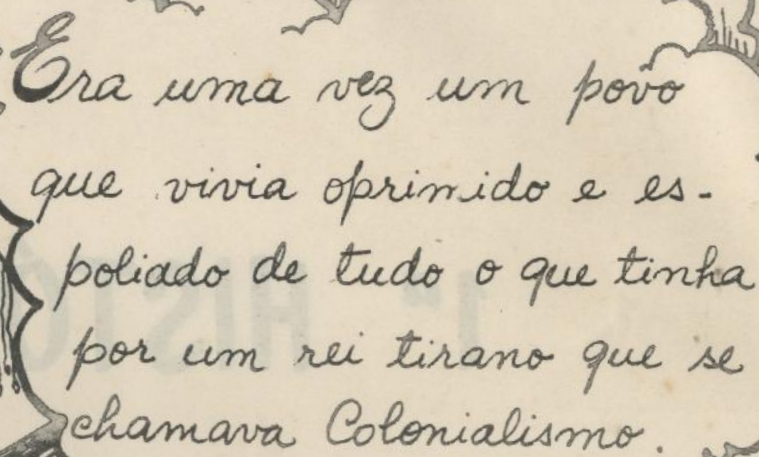 Era uma vez um povo
que vivia oprimido e es-
poliado de tudo o que tinha
por um rei tirano que se
chamava Colonialismo.
1ª HISTÓ